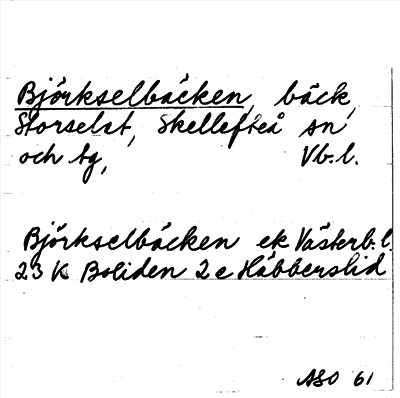 Björkselbäcken, bäck,
Storselet, Skellefteå sn
och tg, Vb. l.
Björkselbäcken ek Västerb. l.
23 K Boliden 2 e Häbberslid
ASO 61